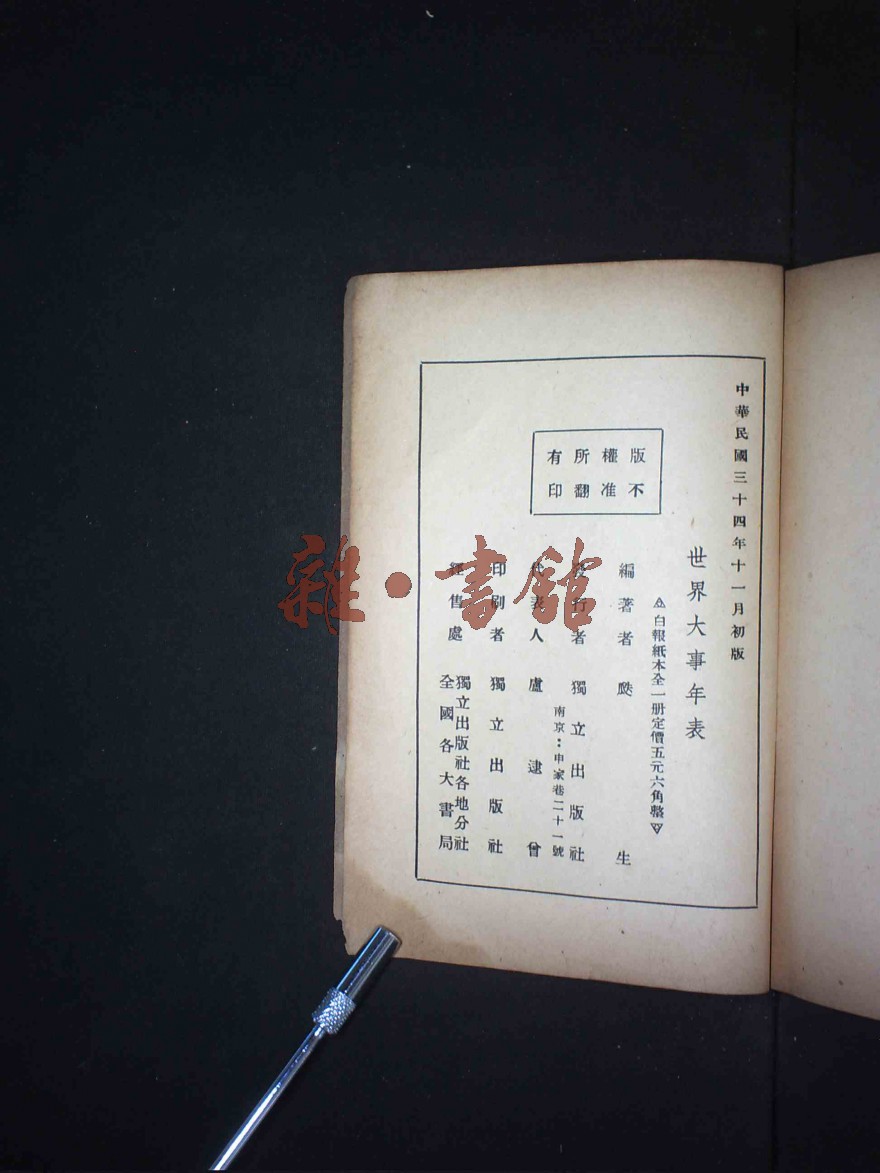 中華民國三十四年十一月初版
世界大事年表
白報紙本全一册定價五元六角整
編著者 生
發行者 獨立出版社
南京：申家巷二十一號
代表人 盧逮曾
印刷者 獨立出版社
經售處 獨立出版社各地分社
全國各大書局
版權所有
不准翻印
雜·書館